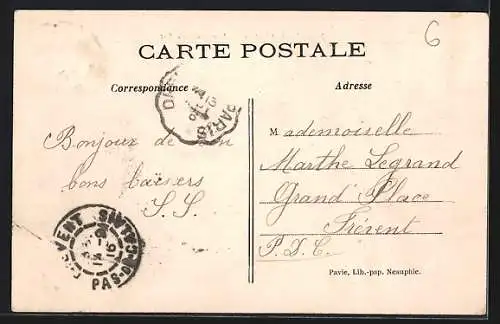 6
CARTE POSTALE
Correspondance
Adresse
PARIS
Bonjour de
bons baisers
S. S.
Mademoiselle
Marthe Legrand
Grand' Place
Frévent
P. D. C.
Pavie, Lib.-pap. Neauphle.
PAS-DE-C